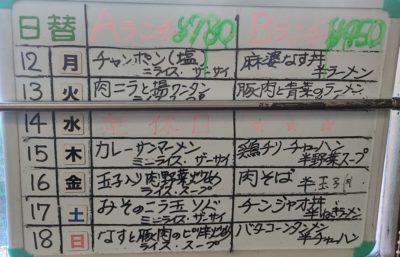 日替 Aランチ ¥780 Bランチ ¥950
12 月 チャンポン(塩) 麻婆なす丼
ミニライス・ザーサイ 半ラーメン
13 火 肉ニラと揚ワンタン 豚肉と青菜のラーメン
14 水 定休日
15 木 カレーサンマーメン 鶏チリ・チャーハン
ミニライス・ザーサイ 半野菜スープ
16 金 玉子入り肉野菜炒め 肉そば
ライス・スープ 半玉子丼
17 土 みそのニラ玉ソバ チンジャオ丼
ミニライス・ザーサイ 半ねぎラーメン
18 日 なすと豚肉のピリ辛炒め バターコーンタンメン
ライス・スープ 半チャーハン